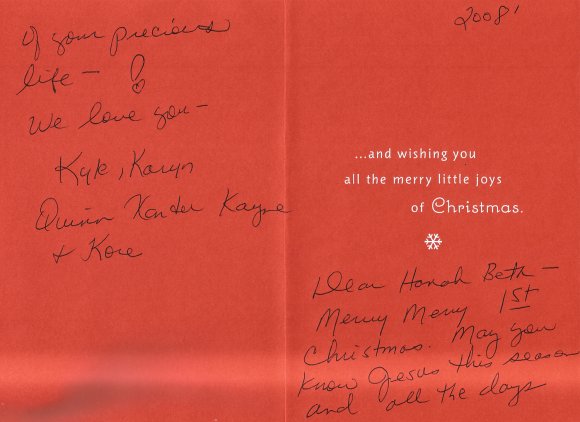 of your precious
life – !
We love you –
Kyle, Karyn
Quinn Xander Kayne
+ Kore
2008'
...and wishing you
all the merry little joys
of Christmas.
Dear Hanah Beth –
Merry Merry 1st
Christmas. May you
know Jesus this season
and all the days